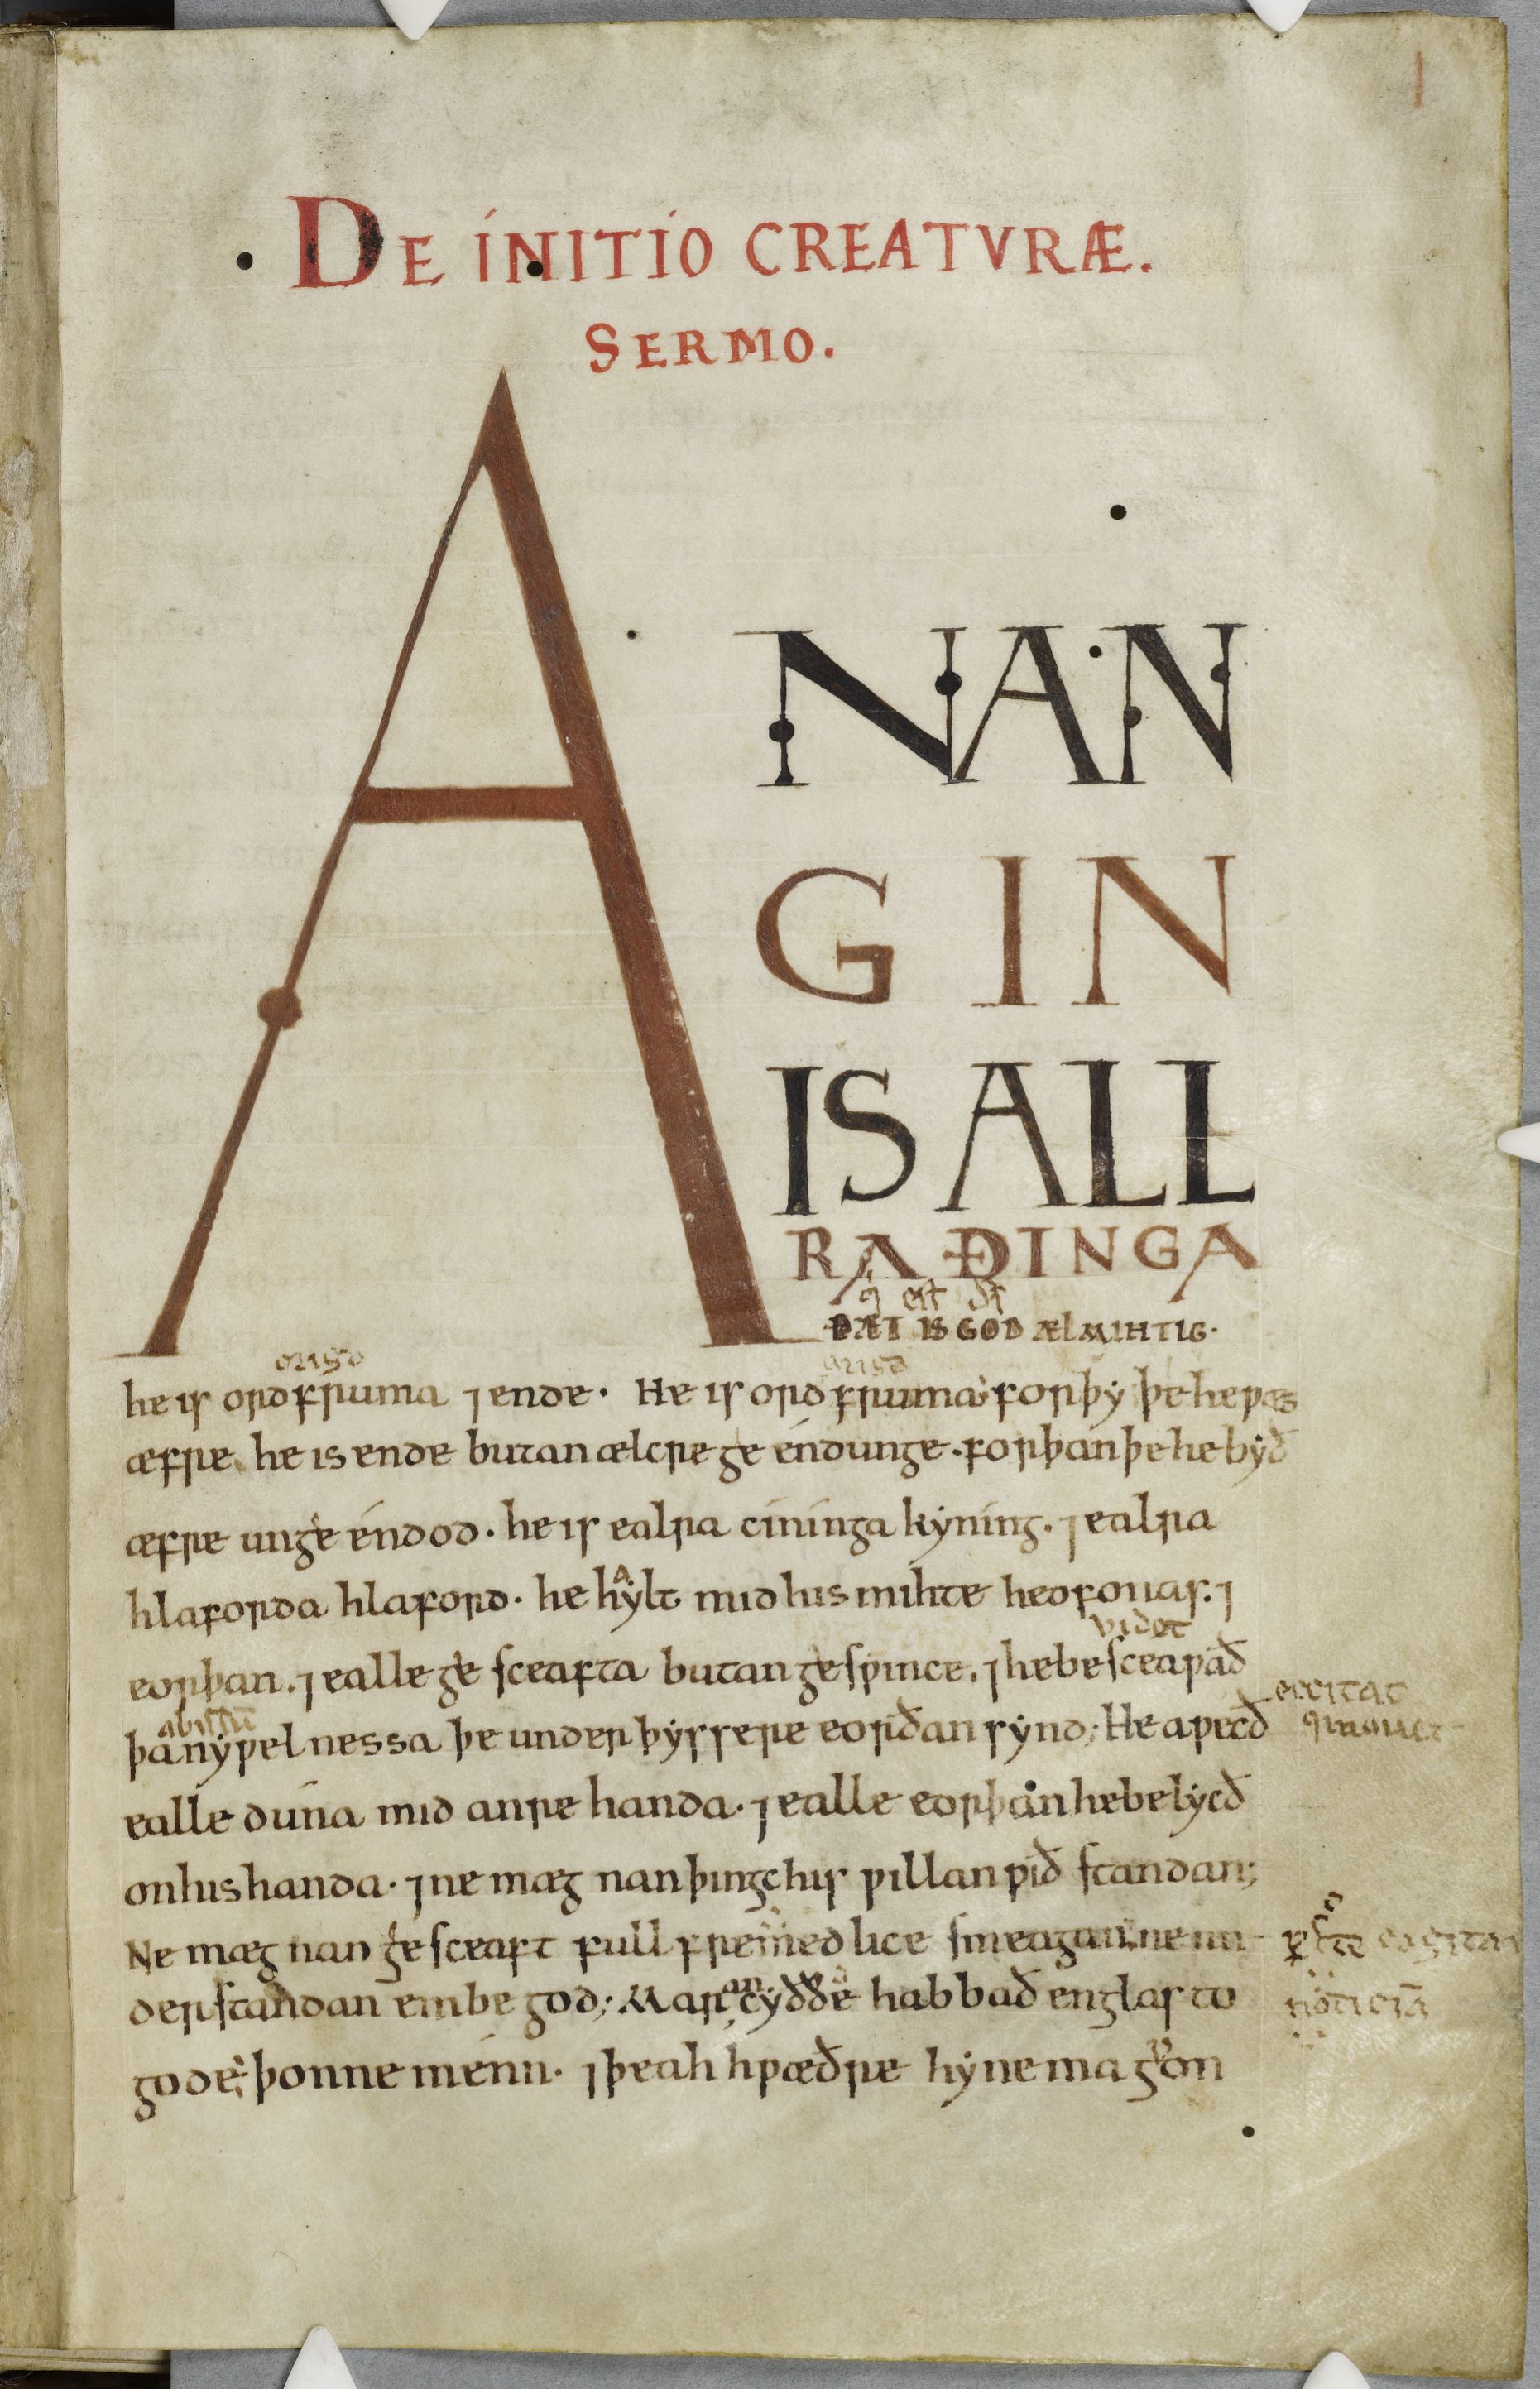 DE INITIO CREATVRÆ.
SERMO.
ANAN
GIN
IS ALL
RA ÐINGA
q est ds
ÞÆT IS GOD ÆLMIHTIG.
origo origo
he is ordfruma ⁊ ende. He is ordfruma forþẏ þe he ƿæs
æfre. he is ende butan ælcre ge éndunge. forþan þe he bẏð
æfre unge éndod. he is ealra cininga kẏning. ⁊ ealra
hlaforda hlaford. he hẏlt mid his mihte heofonas. ⁊
videt
eorþan. ⁊ ealle ge sceafta butan gesƿince. ⁊ he besceaƿað
excitat
abissū
þa nẏƿelnessa þe under þẏssere eorðan sẏnd; He aƿecð
ealle duna mid anre handa. ⁊ ealle eorþan he belẏcð
on his handa. ⁊ ne mæg nan þingc his ƿillan ƿið standan;
Ne mæg nan ge sceaft full fremedlice smeagan. ne un
derstandan embe god; Mar an cẏððe habbað englas to
noticiā
gode þonne menn. ⁊ þeah hƿæðre hẏ ne magon